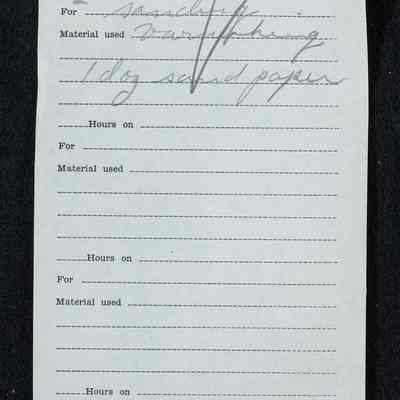 For sanding
Material used varnishing
1 doz sand paper
Hours on
For
Material used
Hours on
For
Material used
Hours on